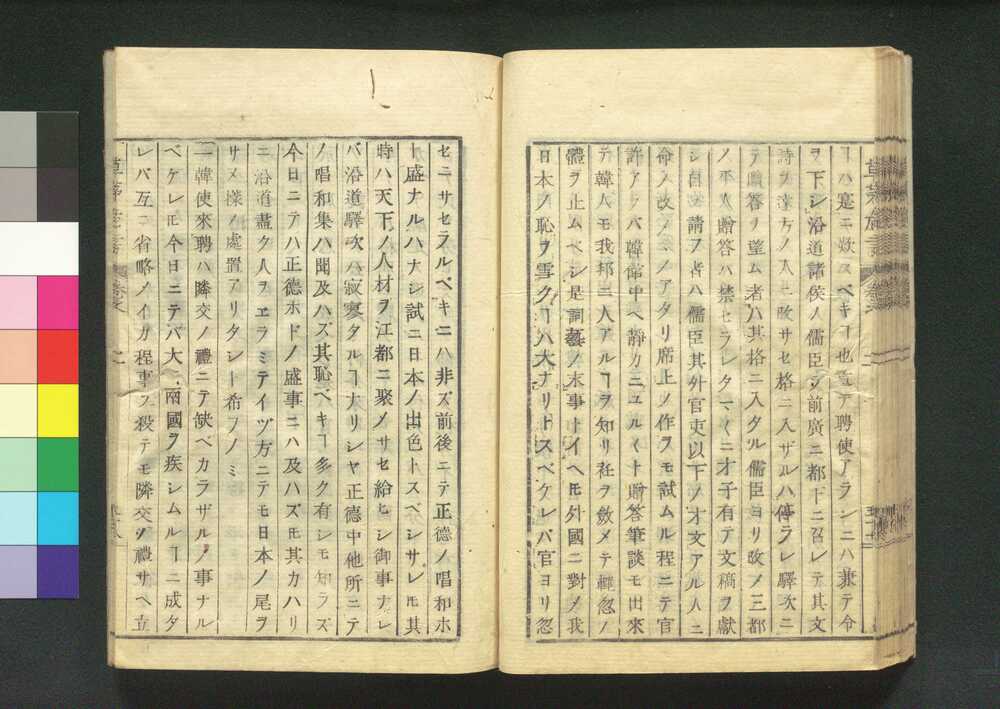 ヿハ寔ニ歎スベキヿ也重テ聘使アランニハ兼テ令
ヲ下シ沿道諸侯ノ儒臣ヲ前廣ニ都下ニ召レテ其文
詩ヲ達方ノ人ニ改サセ格ニ入ザルハ停ラレ驛次ニ
テ贈答ヲ望ム者ハ其格ニ入タル儒臣ヨリ改メ三都
ノ平人贈答ハ禁セラレタマ〱ニ才子有テ文稿ヲ獻
シ自ラ請フ者ハ儒臣其外官吏以下ノ才文アル人ニ
命メ改メマノアタリ席上ノ作ヲモ試ムル程ニテ官
許アラバ韓館中ヘ靜カニユル〱ト贈答筆談モ出來
テ韓人モ我邦ニ人アルヿヲ知リ衽ヲ斂メテ輕忽ノ
體ヲ止ムベシ是詞藝ノ末事トイヘ𪜈外國ニ對メ我
日本ノ恥ヲ雪クヿハ大ナリトスベケレバ官ヨリ忽
セニサセラルベキニハ非ズ前後ニテ正德ノ唱和ホ
ト盛ナルハナシ試ニ日本ノ出色トスベシサレ𪜈其
時ハ天下ノ人材ヲ江都ニ聚メサセ給ヒシ御事ナレ
バ沿道驛次ハ寂寞タルヿ大リシヤ正德中他所ニテ
ノ唱和集ハ聞及ハズ其恥ベキヿ多ク有シモ知ラズ
今日ニテハ正德ホドノ盛事ニハ及ハズモ其カハリ
ニ沿道盡ク人ヲエラミテイヅ方ニテモ日本ノ尾ヲ
サメ樣ノ處置アリタシト希フノミ
一韓使來聘ハ隣交ノ禮ニテ缺ベカラザルノ事ナル
ベケレ𪜈今日ニテバ大ヘ兩國ヲ疾シムルヿニ成タ
レバ互ニ省略ノイカ程事ヲ殺テモ隣交ノ禮サヘ立